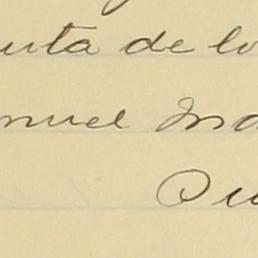 uta de lo
nuel Ma
Qu